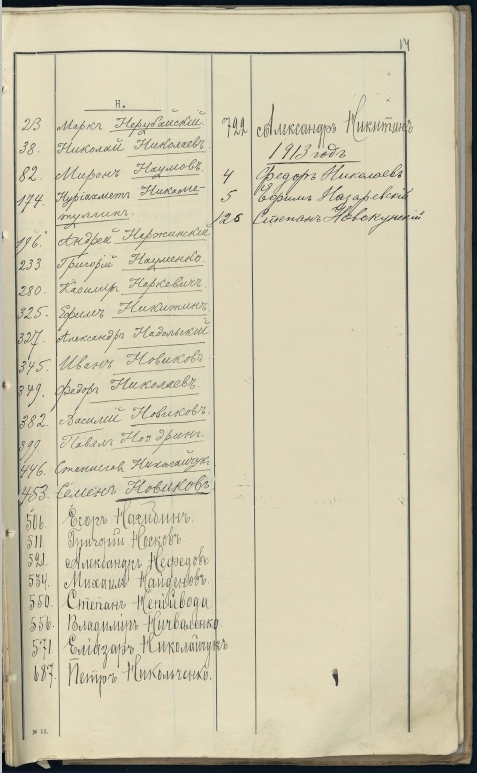 14
Н.
23 Маркъ Нерубайскій
38. Николай Николаевъ.
82. Миронъ Наумовъ.
174. Нуріахметъ Никоме-
туллинъ.
196. Андрей Норжинскій
233. Григорій Науменко.
280. Касиміръ Наркевичъ.
325. Ефимъ Никитинъ.
327. Александръ Надольскій
345. Иванъ Новиковъ
349. Федоръ Николаевъ.
382. Василій Новиковъ.
399 Павелъ
446. Николайчукъ
453. Семенъ Новиковъ
506. Егоръ Нагибинъ.
511. Григорій Носковъ.
521. Александръ Нефедовъ
534. Михаилъ Найденовъ.
550. Степанъ Непійвода
556. Владиміръ Ничваленко.
571. Еліазаръ Николайчукъ
687. Петръ Никольченко.
722 Александръ Никитинъ
1913 годъ
4 Федоръ Николаевъ
5 Ефимъ Назаревскій
125 Степанъ
№ 13.